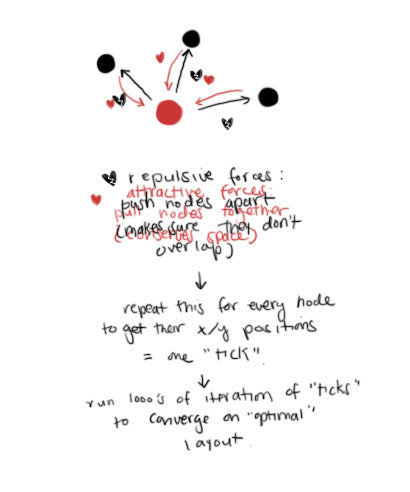 repulsive forces:
push nodes apart
(makes sure they don't
overlap)
attractive forces:
pull nodes together
(conserves space)
repeat this for every node
to get their x/y positions
= one "tick"
run 1000's of iteration of "ticks"
to converge on "optimal"
layout